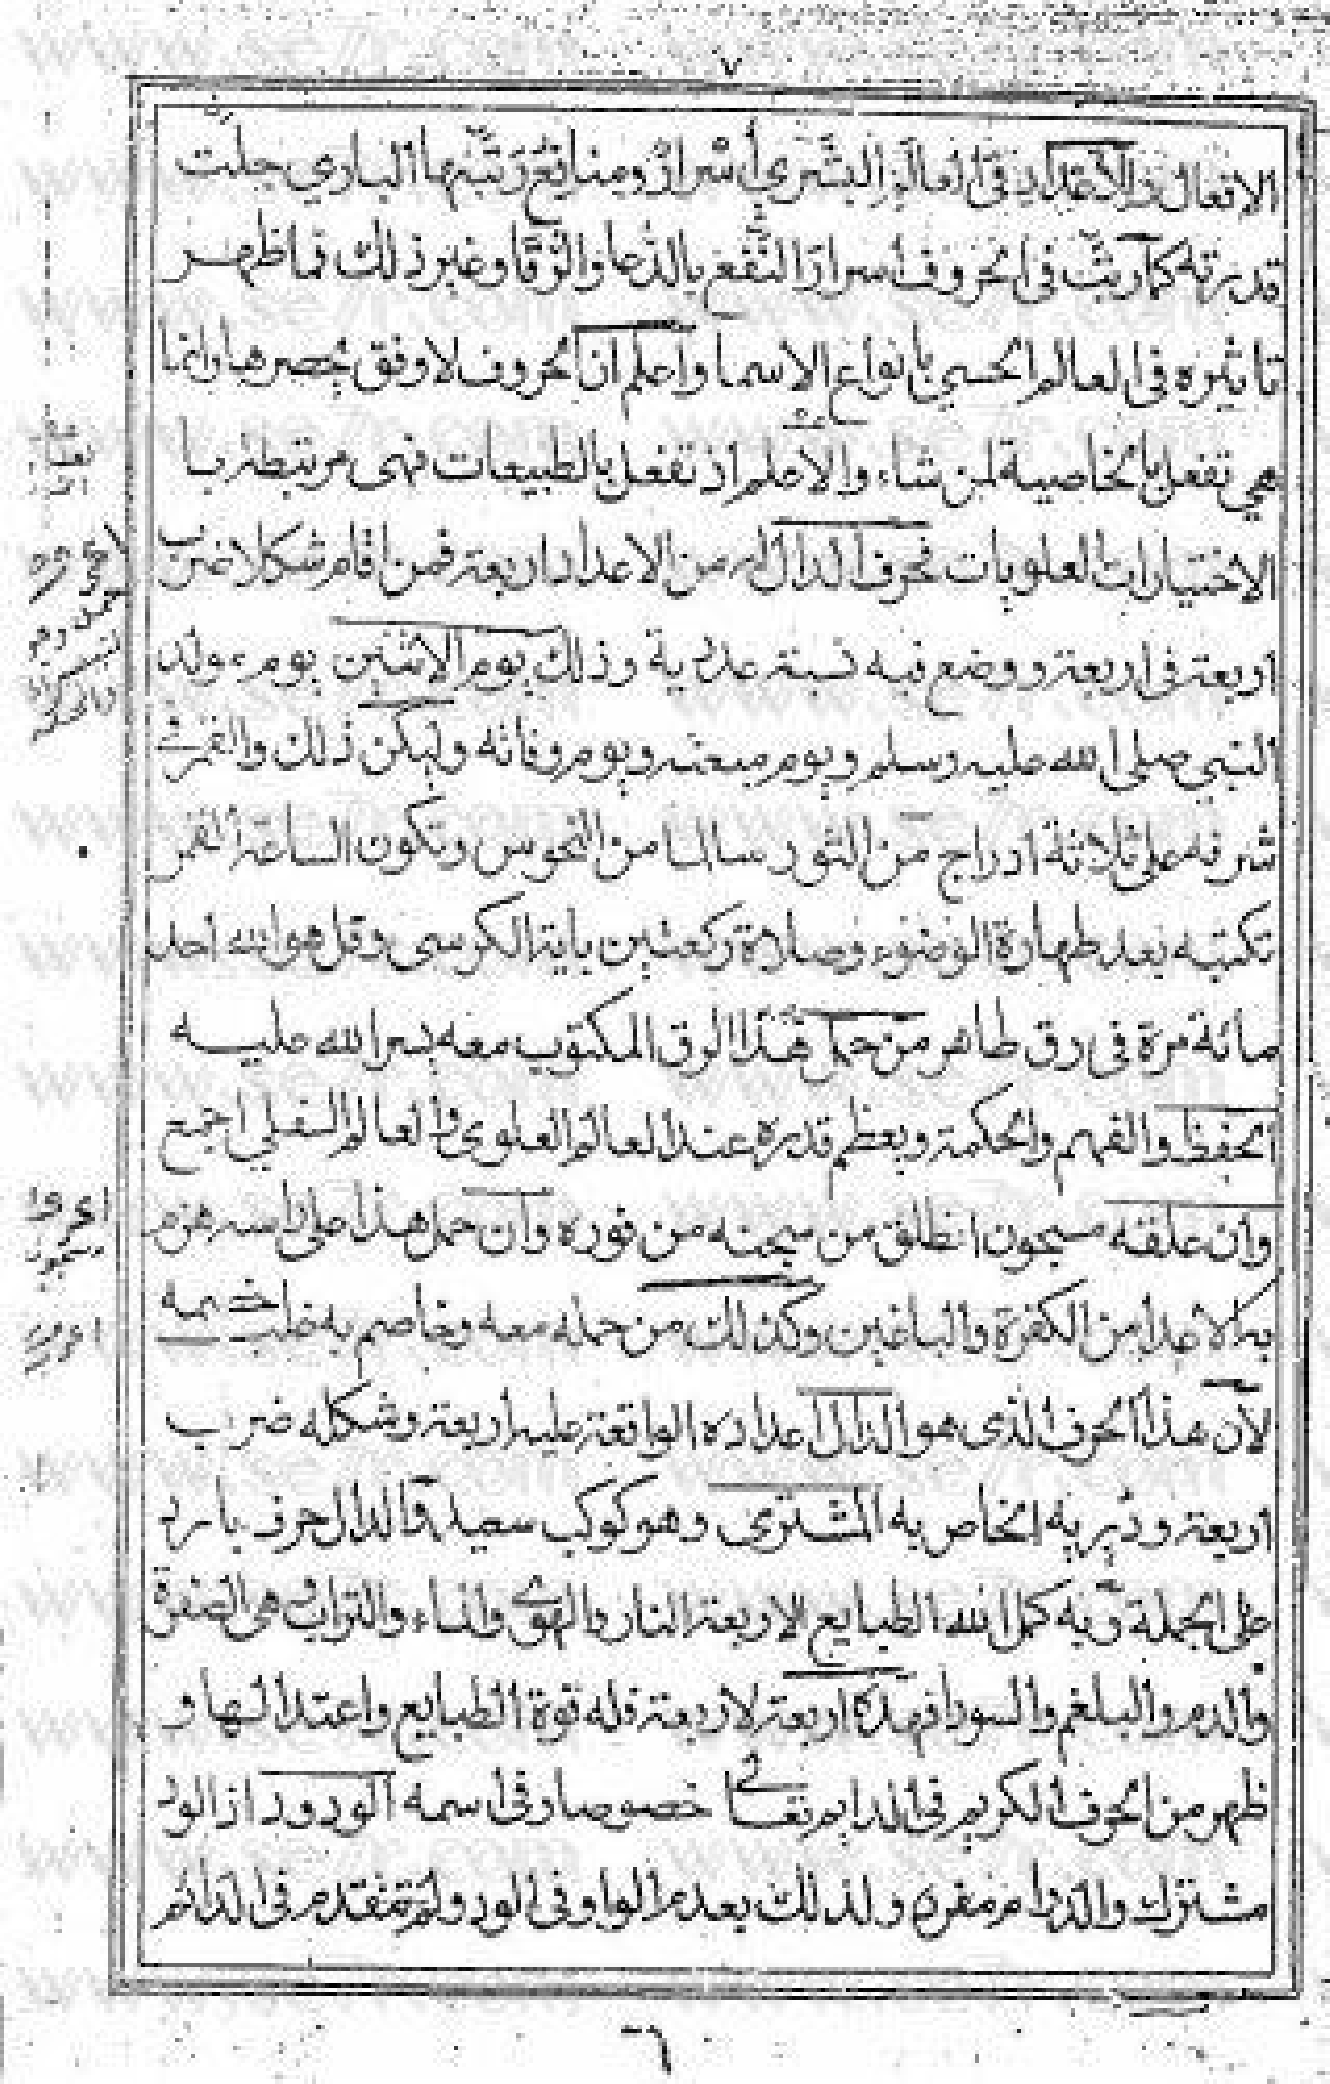 ٧
الافعال والاعداد في العالم البشري أسرار ومنافع رتبها الباري جلت
قدرته كما رتب في الحروف أسرارا النفع بالدعا والرقا وغير ذلك فما ظهر
تاثيره في العالم الحسي بانواع الاسما واعلم ان الحروف لا وفق بحصرها وانما
هي تفعل بالخاصية لمن شاء والاعلم اذ تفعل بالطبيعات فهى مرتبطة با
الاختيارات العلويات فحرف الدال له من الاعداد اربعة فمن اقام شكلا ضرب
اربعة في اربعة ووضع فيه نسبة عددية وذلك يوم الاثنين يوم مولد
النبي صلى الله عليه وسلم ويوم مبعثه ويوم وفاته وليكن ذلك والقمر في
شرفه على ثلاثة ادراج من الثور سالما من النحوس وتكون الساعة القمر
تكتبه بعد طهارة الوضوء وصلاة ركعتين باية الكرسي وقل هو الله احد
مائة مرة في رق طاهر من حمل هذا الرق المكتوب معه يسر الله عليه
الحفظ والفهم والحكمة ويعظم قدره عند العالم العلوى والعالم السفلي اجمع
وان علقه مسجون انطلق من سجنه من فوره وان حمل هذا على راسه هزم
به الاعدا من الكفرة والباغين وكذلك من حمله معه وخاصم به غلب خصمه
لان هذا الحرف الذى هو الدال اعداده الواقعة عليه اربعة وشكله ضرب
اربعة ودبر به الخاص به المشترى وهو كوكب سعيد والدال حرف بارد
على الجملة وبه كمل الله الطبايع الاربعة النار والهوى والماء والتراب وهي الصفرة
والدم والبلغم والسودا فهذه اربعة لاربعة فله قوة الطبايع واعتدالها و
ظهر من الحرف الكريم في الدايم تعالى خصوصا وفي اسمه الودود اذ الود
مشترك والدوام مفرد ولذلك بعدم الواو في الود ولم تتقدم في الدائم
٦